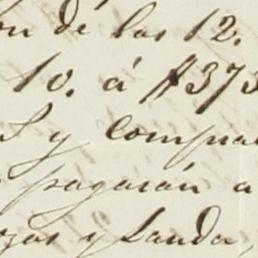 ón de las 12.
10. á $373
y compra
pagarán a
y Landa,